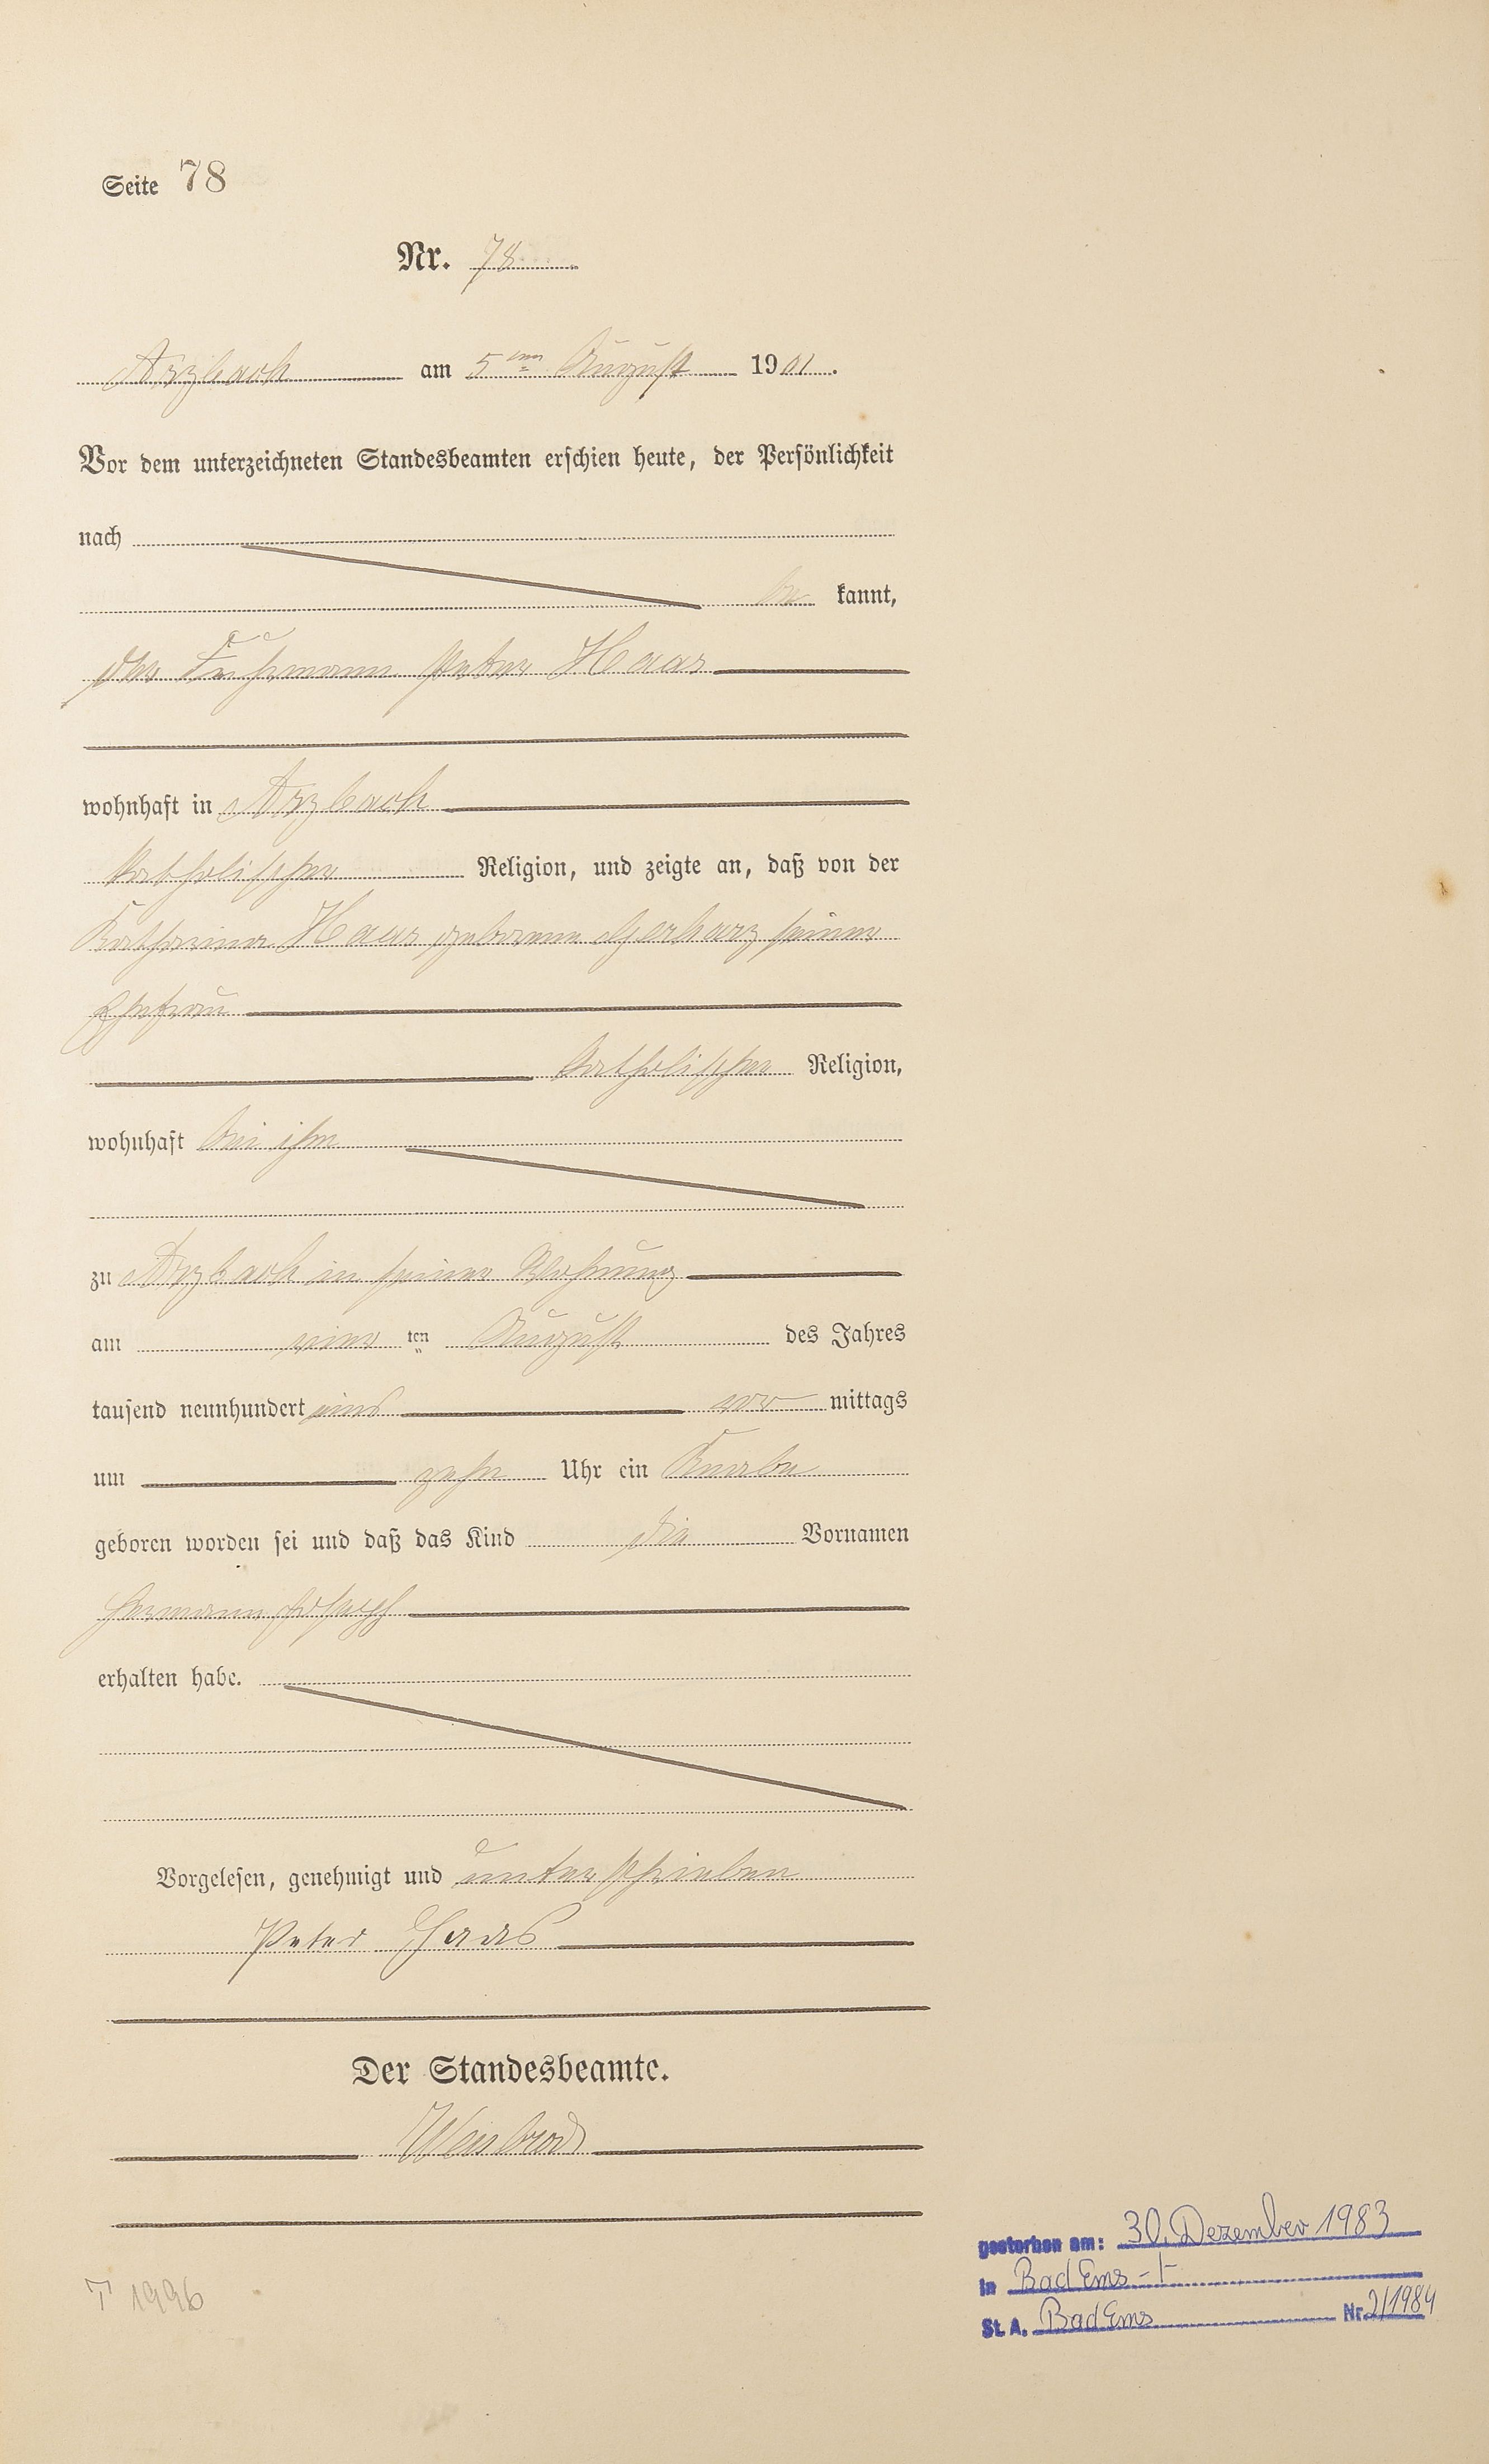 Seite 78
Nr. 78
Arzbach am 5ten August 1901.
Vor dem unterzeichneten Standesbeamten erschien heute, der Persönlichkeit
nach
be kannt,
der Fuhrmann Peter Haas
wohnhaft in Arzbach
katholischer Religion, und zeigte an, daß von der
Katharina Haas geborene Gerharz seiner
Ehefrau
katholischer Religion,
wohnhaft bei ihm
zu Arzbach in seiner Wohnung
am vier ten August des Jahres
tausend neunhundert eins vor mittags
um zehn Uhr ein Knabe
geboren worden sei und daß das Kind die Vornamen
Hermann Joseph
erhalten habe.
Vorgelesen, genehmigt und unterschrieben
Peter Haas
Der Standesbeamte.
Weisbrod
gestorben am: 30. Dezember 1983
in Bad Ems
St. A. Bad Ems Nr. 2/1984
T 1996